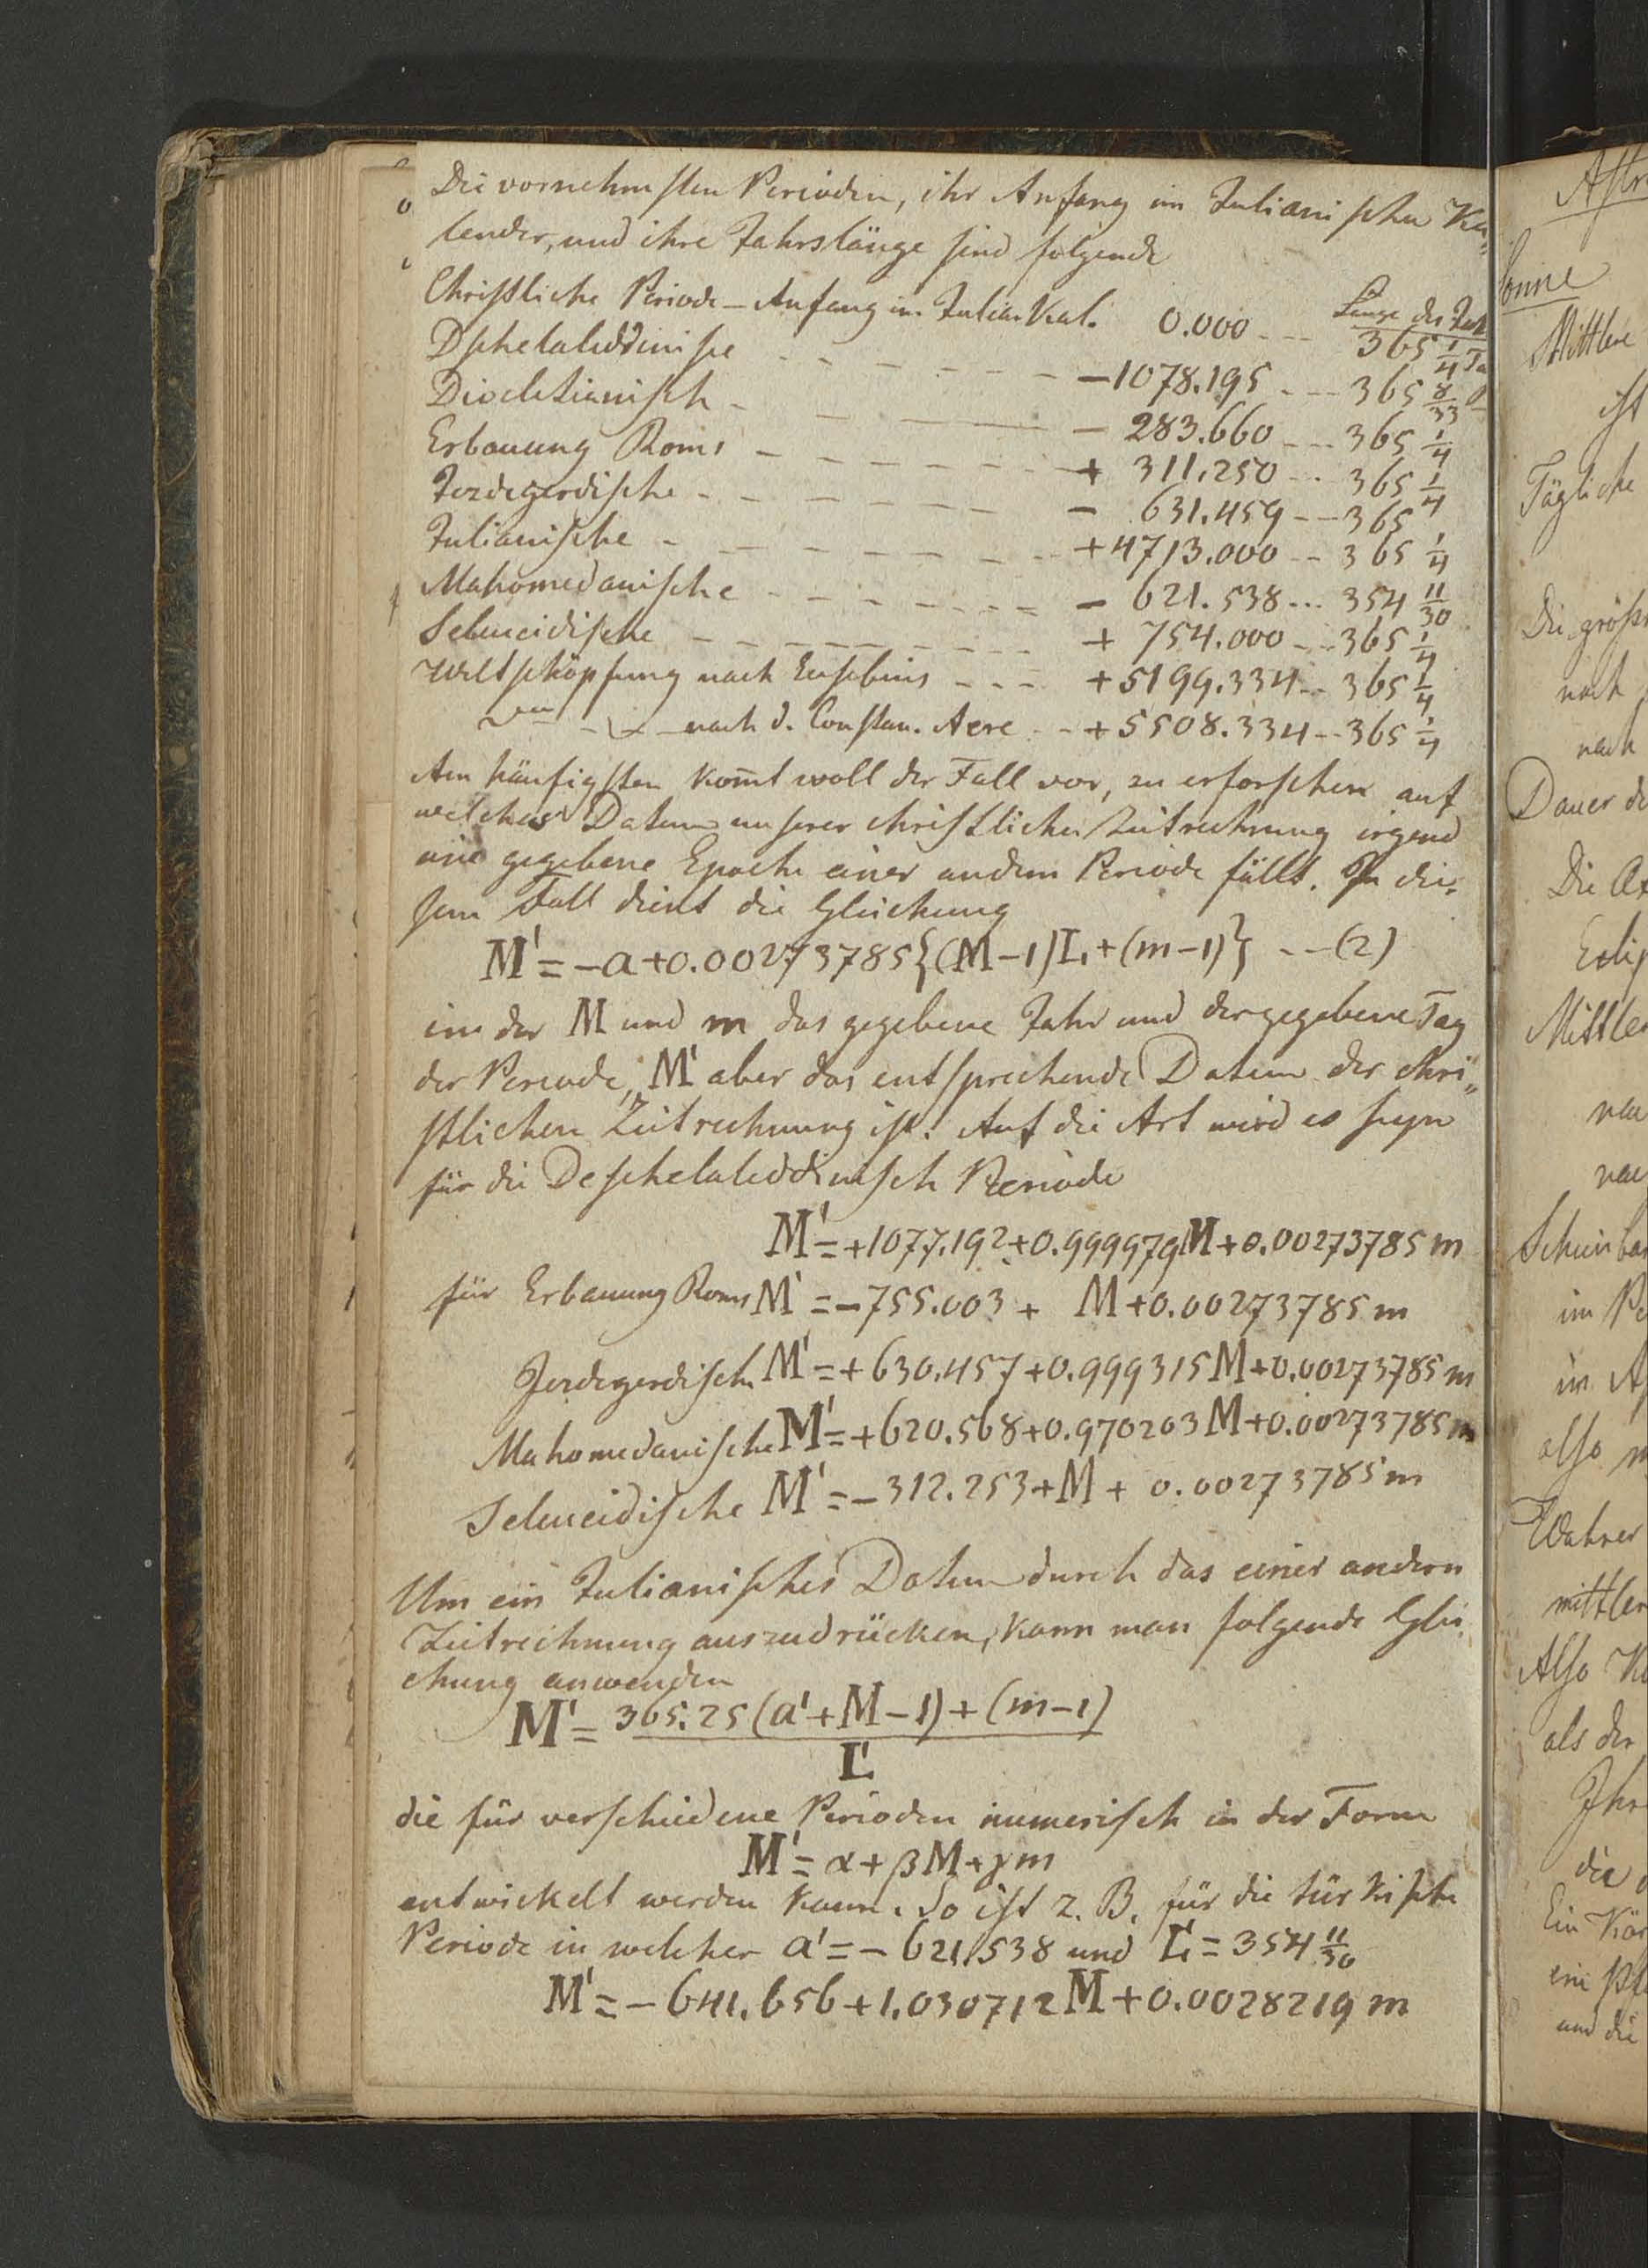 Die vornehmsten Perioden, ihr Anfang im Julianischen Ka-
lender, und ihre Jahrslänge sind folgende
Christliche Periode – Anfang im Julian. Kal. 0.000 --- Länge des Jahr 365 1/4 Ta
Dschelaleddinische - - - - - - - −1078.195 --- 365 8/33
Diocletianisch - - - − 283.660 --- 365 1/4
Erbauung Roms - - - - - - - + 311.250 -- 365 1/4
Jezdegerdische - - - - - - - − 631.459 -- 365
Julianische - - - - - - - - +4713.000 -- 365 1/4
Mahomedanische - - - - - - - − 621.538 ... 354 11/30
Seleucidische - - - - - - - - + 754.000 -- 365 1/4
Weltschöpfung nach Eusebius - - - +5199.334 -- 365 1/4
nach d. Constan. Aere - - +5508.334 -- 365 1/4
Am häufigsten kom̄t woll der Fall vor, zu erforschen auf
welches Datum unserer christlichen Zeitrechnung irgend
eine gegebene Epoche einer andern Periode fällt. In die-
sem Fall dient die Gleichung
M' = −a+0.00273785{(M−1)L+(m−1)} --(2)
in der M und m das gegebene Jahr und der gegebene Tag
der Periode, M' aber das entsprechende Datum der chri„
stlichen Zeitrechnung ist. Auf die Art wird es seyn
für die Deschelaleddinisch Periode
M' = +1077.192+0.999979M+0.00273785m
für Erbauung Roms M' = −755.003 + M+0.00273785m
Jezdegerdisch M' = +630.457+0.999315M+0.00273785m
Mahomedanische M' = +620.568+0.970203M+0.00273785m
Seleucidische M' = −312.253+M + 0.00273785m
Um ein Julianisches Datum durch das einer andern
Zeitrechnung auszudrücken, kann man folgende Glei-
chung anwenden
M' = 365.25(a'+M−1)+(m−1)
L'
die für verschiedene Perioden numerisch in der Form
M' = α+βM+γm
entwickelt werden kann. So ist z. B. für die türkische
Periode in welcher a' = −621.538 und L' = 354 11/30
M' = −641.656+1.030712M+0.0028219m
Astr
Sonne
Mittlere
ist
Tägliche
Die größs
nach
nach
Dauer de
Die
Eclip
Mittler
Scheinbar
im Pe
im A
also m
Wahrer
mittler
Also
als der
Ihr
die
Ein Kör
ein
und die